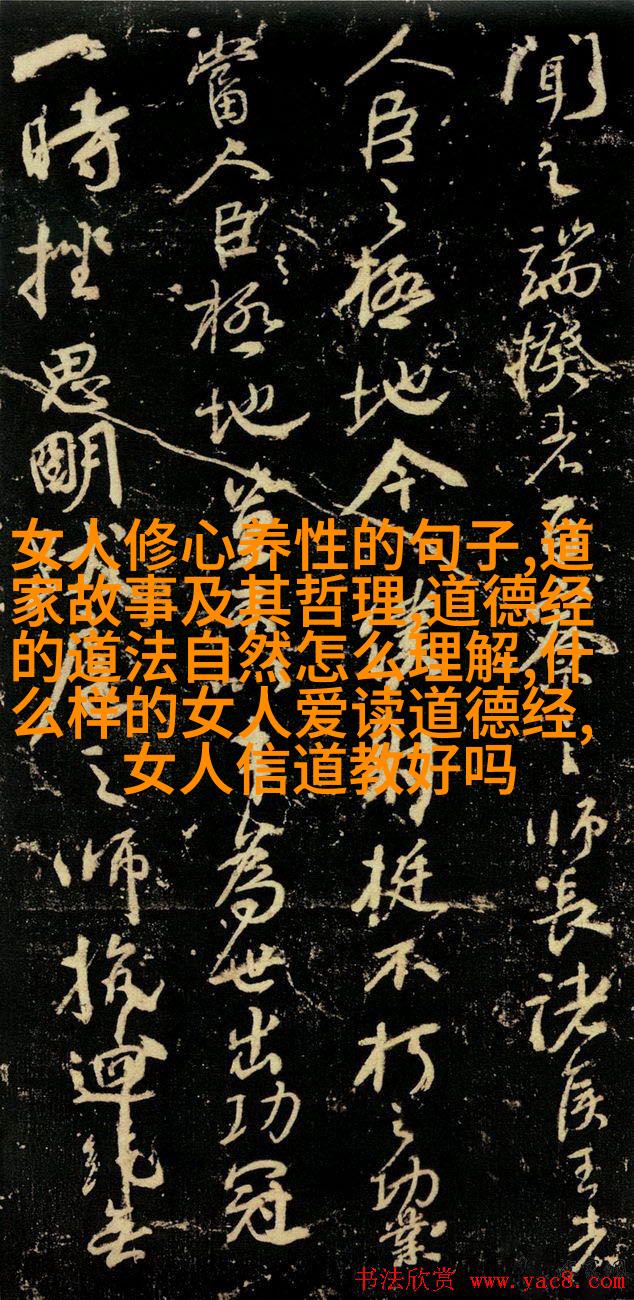 聞之端揆者之師長諸侯王者
人臣之極地今挺不朽之功業
當人臣之極地豈為世出功冠
一時挫思明之師抗迴紇無
女人修心养性的句子,道
家故事及其哲理,道德经
的道法自然怎么理解,什
么样的女人爱读道德经,
女人信道教好吗
书法欣赏 www.yac8.com